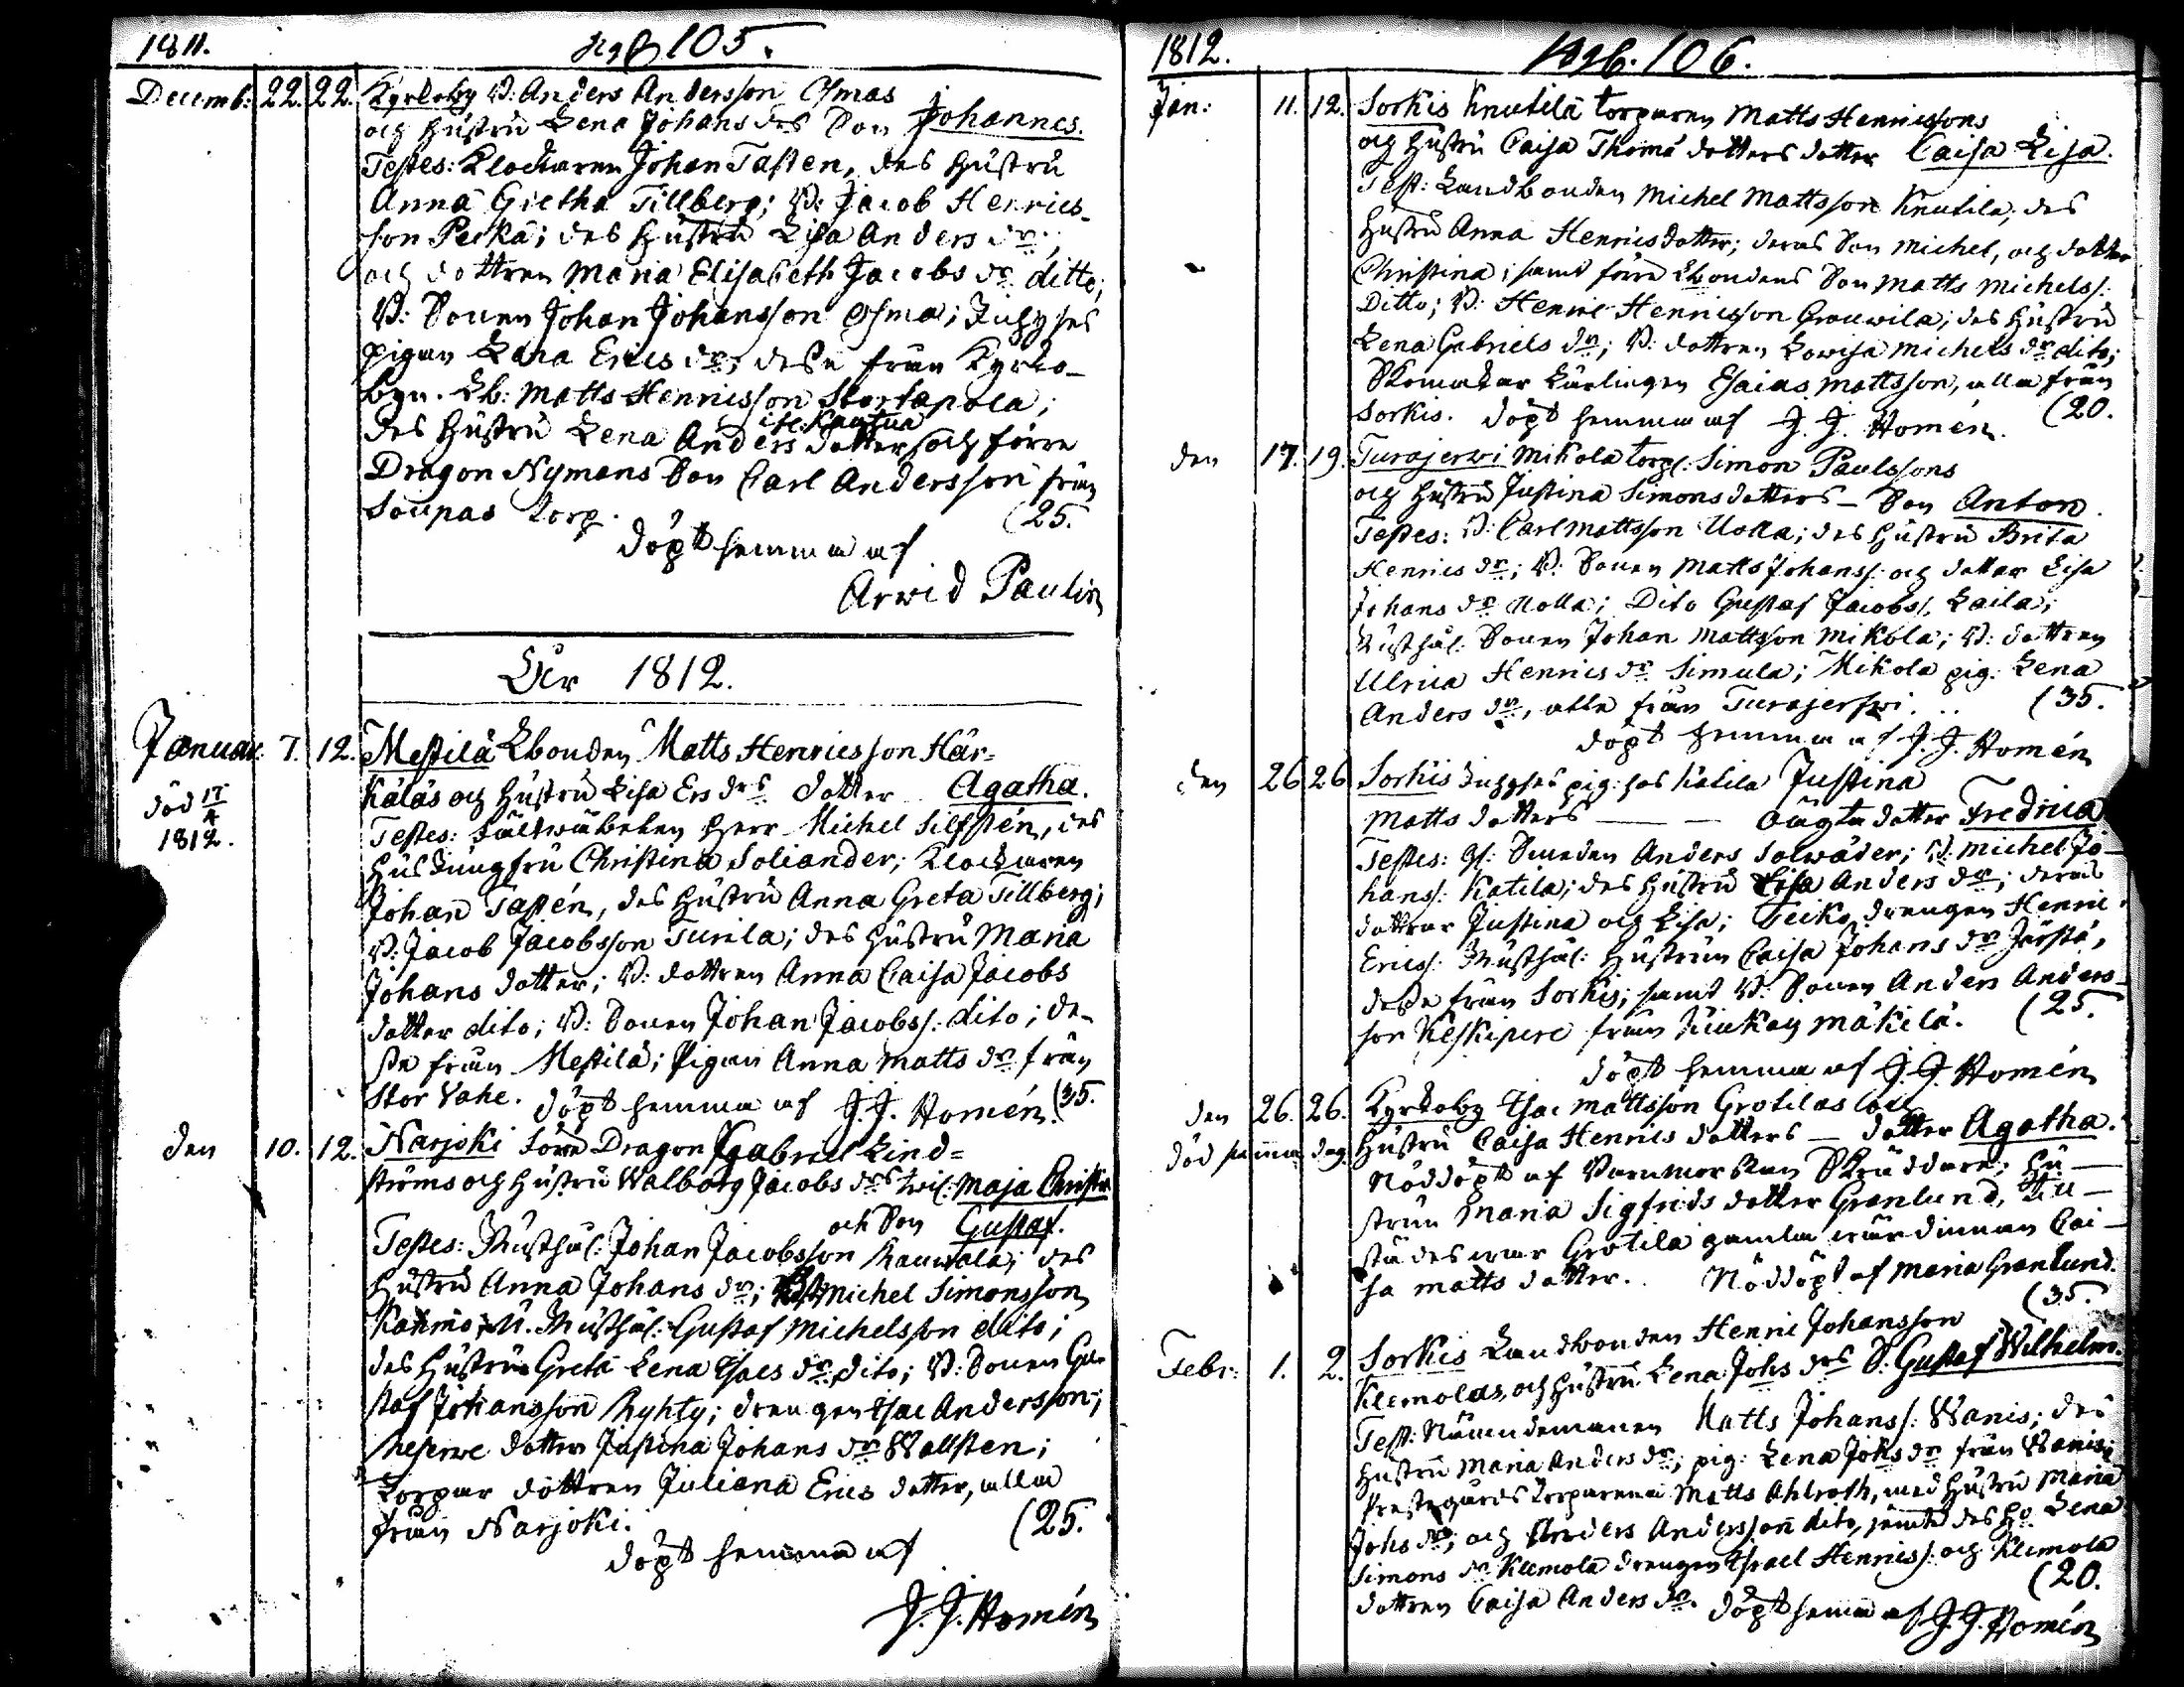 1811.
pag. 105.
Decemb: 22. 22. Kyrkoby B: Anders Andersson Osmas
och hustru Lena Johans des Son Johannes.
Testes: Klockaren Johan Tasten, des hustru
Anna Gretha Tillberg; B: Jacob Henrics-
son Pecka; des hustru Lisa Anders dr;
och dottren Maria Elisabeth Jacobs dr ditto;
B: Sonen Johan Johansson Osma; Inhyses
pigan Lena Erics dr; desse från Kyrko-
byn. Lb: Matts Henricsson Stortapola;
des hustru Lena Anders dotter och förre
Dragon Nymans Son Carl Andersson från
Soupas Torp. (25.
döpt hemma af
Arvid Paulin
År 1812.
Januar: 7. 12. Mestilä Lbonden Matts Henricsson Här-
källäs och hustru Lisa Ers drs dotter Agatha.
död 17/4
1812.
Testes: Fältwäbelen Herr Michel Silfsten, des
Husjungfru Christina Soliander; Klockaren
Johan Tastén, des hustru Anna Greta Tillberg;
B: Jacob Jacobsson Turila; des hustru Maria
Johans dotter; B: dottren Anna Caisa Jacobs
dotter dito; B: Sonen Johan Jacobss: dito; de-
sse från Mestilä; Pigan Anna Matts dr från
Stor Vahe. döpt hemma af J. J. Homén. (35.
den 10. 12. Narjoki Förre Dragon Gabriel Lind-
ströms och hustru Walborg Jacobs drs twil: Maja Christin
och Son Gustaf.
Testes: Rusthål: Johan Jacobsson Rauwola; des
hustru Anna Johans dr; Michel Simonsson
Gustaf Michelsson dito;
des hustru Greta Lena Isacs dr dito; B: Sonen Gu-
staf Johansson Ryhty; drengen Isac Andersson;
Reserve dotter Justina Johans dr Wallsten;
Torpar dottren Juliana Erics dotter, alla
från Narjoki. (25.
döpt hemma af
J. J. Homén
1812.
Pag. 106.
Jan: 11. 12. Sorkis Knutilä torparen Matts Henricssons
och hustru Caisa Thomä dotters dotter Caisa Lisa.
Test: Landbonden Michel Mattsson Knutila; des
hustru Anna Henrics dotter; deras Son Michel, och dotter
Christina; samt förre Lbondens Son Matts Michelss:
Ditto; B: Henric Henricsson Grouwila; des hustru
Lena Gabriels dr; B: dottren Lowisa Michels dr dito;
Skomakar Lärlingen Esaias Mattsson, alla från
Sorkis. döpt hemma af J. J. Homén. (20.
den 17. 19. Turajerwi Mikola torp: Simon Paulssons
och hustru Justina Simons dotters – Son Anton.
Testes: B: Carl Mattsson Uolla; des hustru Brita
Henrics dr; B: Sonen Matts Johanss: och dotter Lisa
Johans dr Uolla; Dito Gustaf Jacobs: Laila;
Rusthål: Sonen Johan Mattsson Mikola; B: dottren
Ulrica Henrics dr Simula; Mikola pig: Lena
Anders dr, alla från Turajerfwi. (35.
döpt hemma af J. J. Homén
den 26 26 Sorkis Inhyses pig: hos Katila Justina
Matts dotters — — oägta dotter Fredrica
Testes: Gl: Smeden Anders Solwäder; B: Michel Jo-
hanss: Katila; des hustru Lisa Anders dr; deras
dottrar Justina och Lisa; Teiko drengen Henric
Ericss: Rusthål: hustrun Caisa Johans dr Järstä,
desse från Sorkis; samt B: Sonen Anders Anders-
son Keskipere från Mäkilä. (25.
döpt hemma af J. J. Homén
den 26. 26. Kyrkoby Isac Mattsson Grotilas
död samma dag. hustru Caisa Henrics dotters – dotter Agatha.
Nöddöpt af Barnmorskan Skräddare hu-
strun Maria Sigfrids dotter Granlund,
städes war Grotila gamla wärdinnan Cai-
sa Matts dotter. Nöddöpt af Maria Granlund.
(35.
Febr: 1. 2. Sorkis Landbonden Henric Johansson
Klemolas och hustru Lena Johs drs S: Gustaf Wilhelm.
Test: Nämndemannen Matts Johanss: Wanis; des
hustru Maria Anders dr; pig: Lena Johs dr från Wanis;
Prestegårds torparena Matts Ahlroth, med hustru Maria
Johs dr; och Anders Andersson dito, jemte des hu Lena
Simons dr Klemola drengen Israel Henricss: och Klemola
dottren Caisa Anders dr. (20.
döpt hemma af J. J. Homén